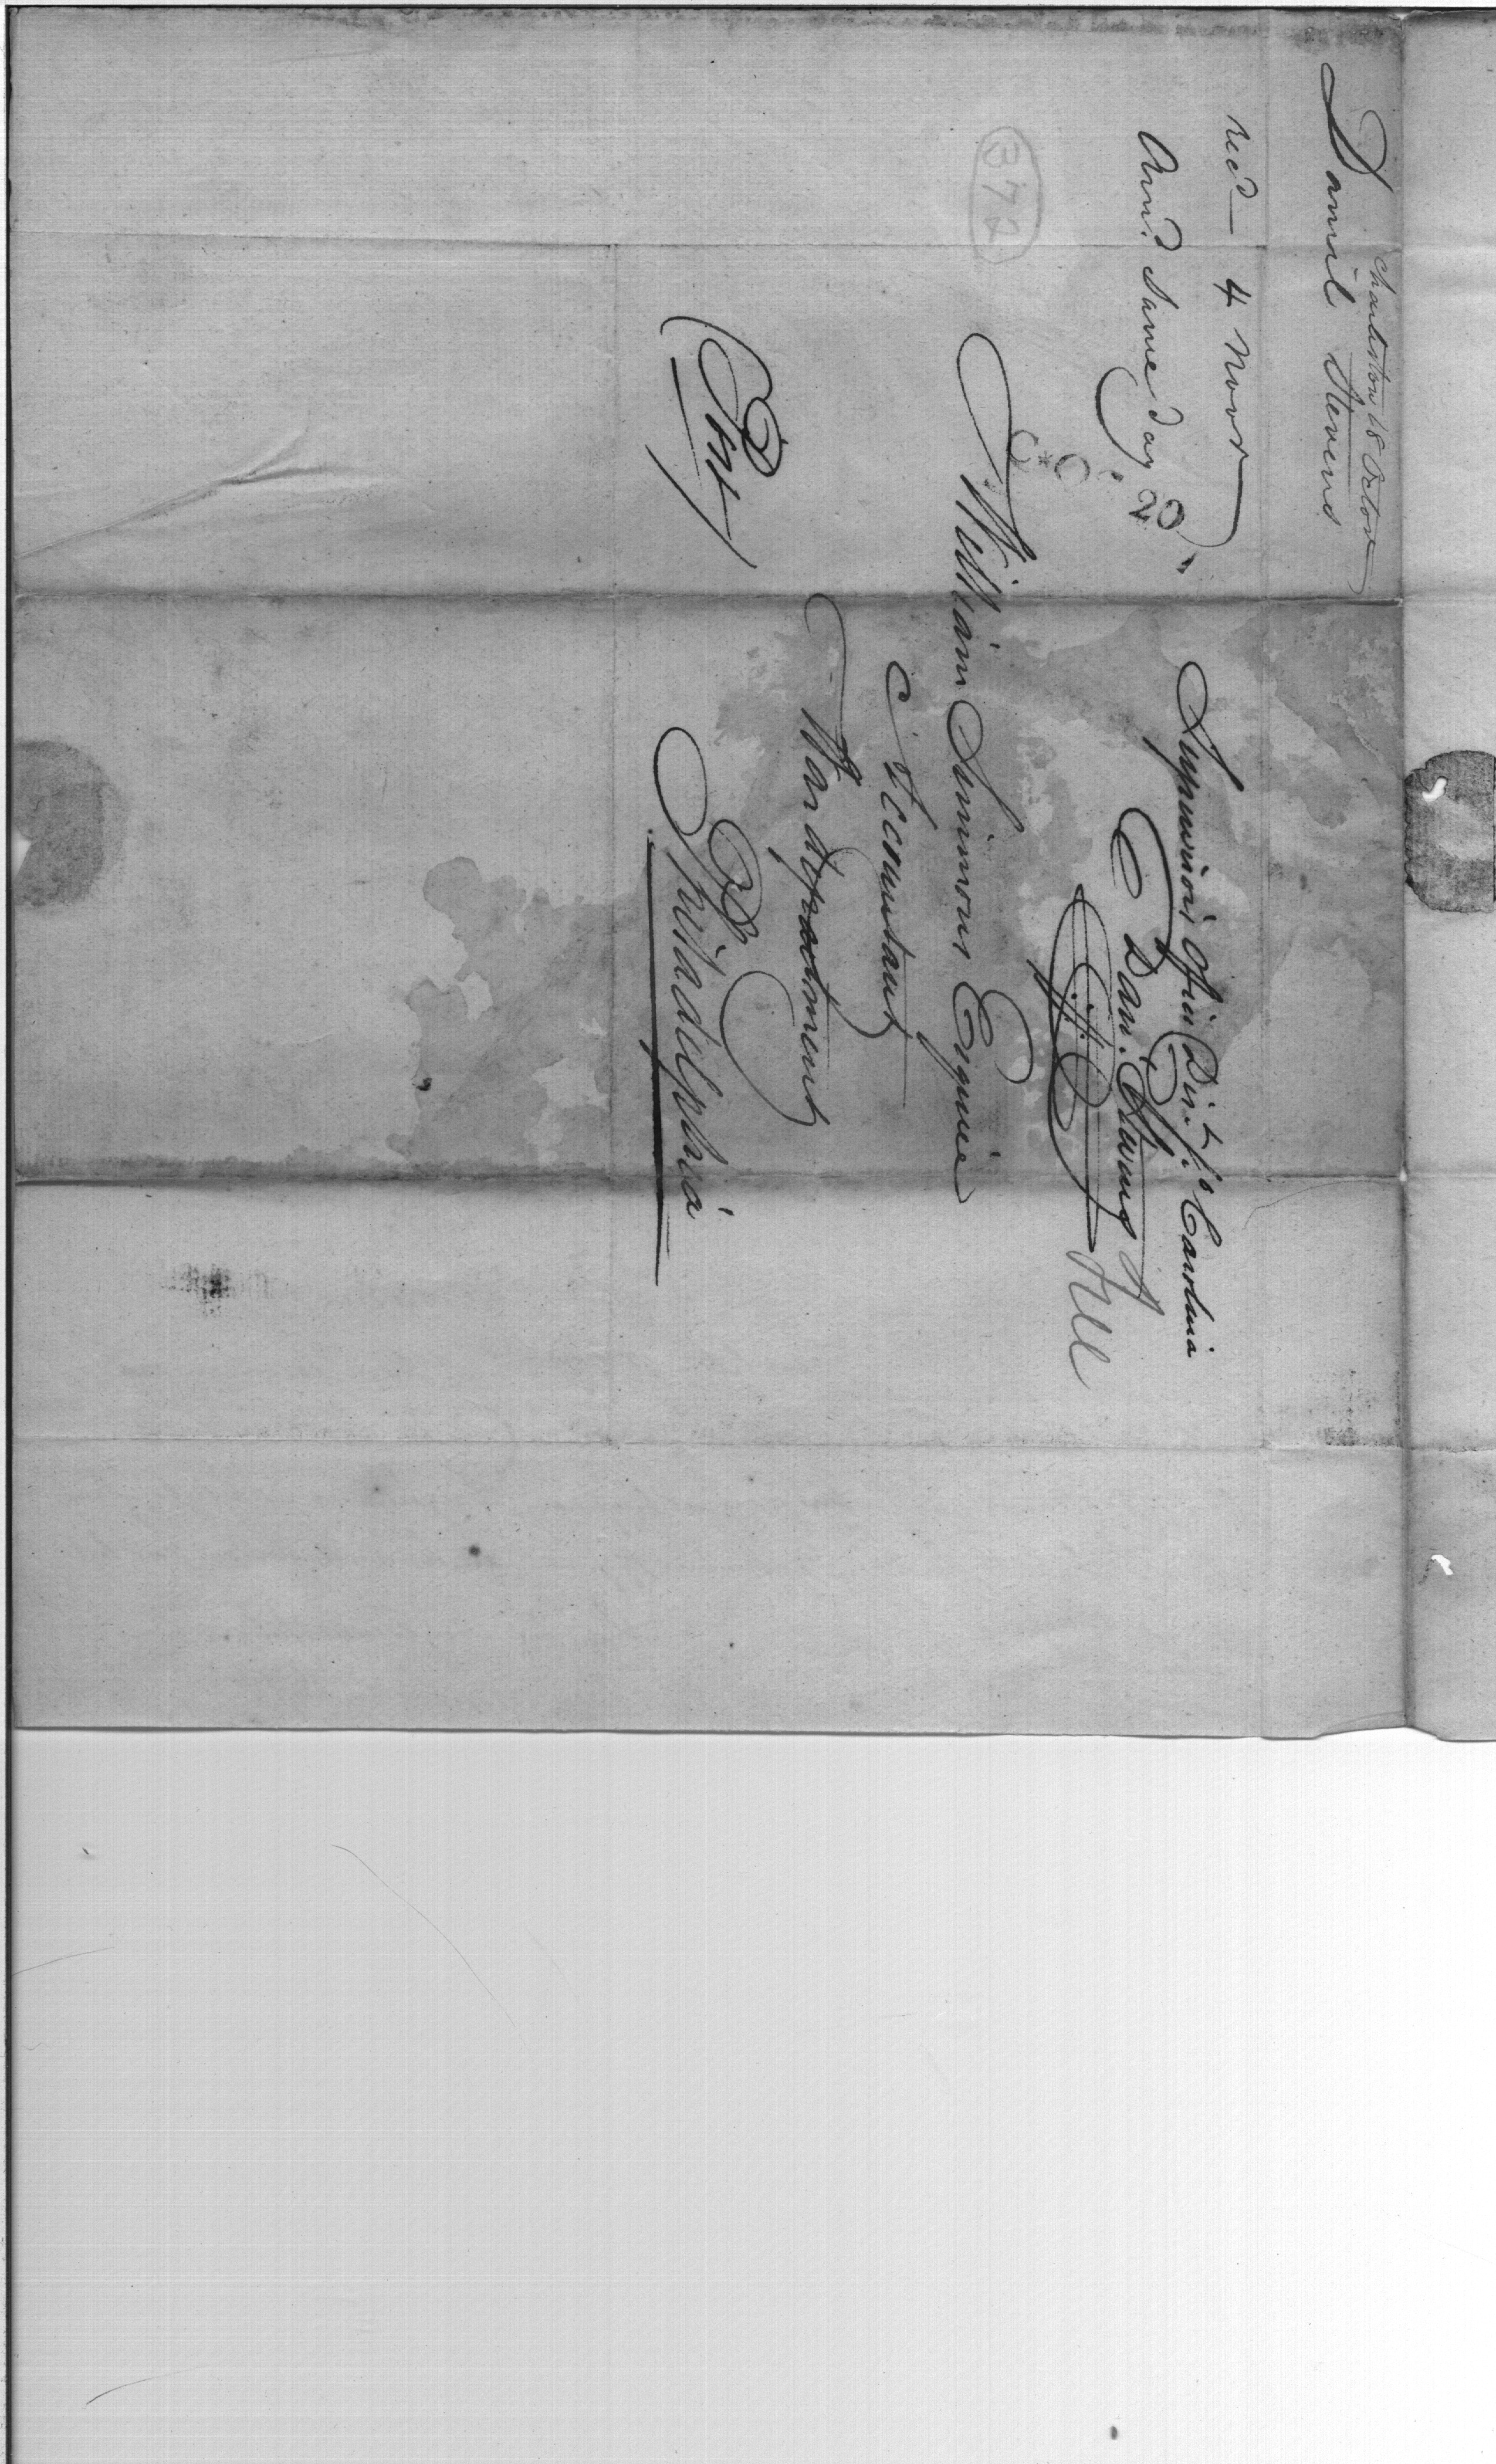 Charleston 18 Octor
Daniel Stevens
recd 4 Novr
Ansd. Same day
372
Supervisors Office Dist. So. Carolina
Dan. Stevens
Free
William Simmons Esquire
Accountant
War department
Philadelphia
Post